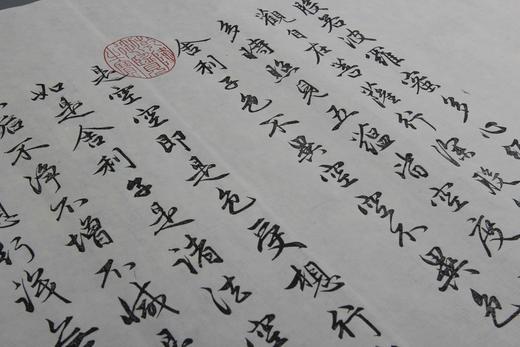 般若波羅蜜多心
觀自在菩薩行深般
多時照見五蘊皆空度
舍利子色不異空空不異色
是空空即是色受想行
如是舍利子是諸法空
垢不淨不增不減是
想行識無